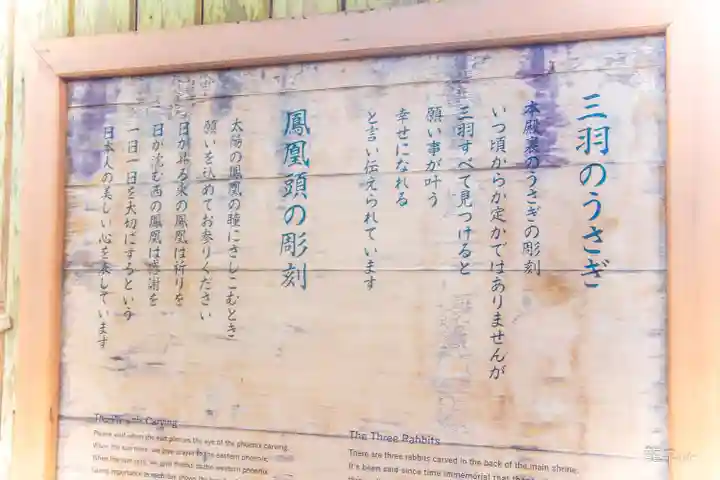 三羽のうさぎ
本殿裏のうさぎの彫刻
いつ頃からか定かではありませんが
三羽すべて見つけると
願い事が叶う
幸せになれる
と言い伝えられています
鳳凰頭の彫刻
太陽の鳳凰の瞳にさしこむとき
願いを込めてお参りください
日が昇る東の鳳凰は祈りを
日が沈む西の鳳凰は感謝を
一日一日を大切にするという
日本人の美しい心を表しています
The Phoenix Carving
Please visit when the sun pierces the eye of the phoenix carving.
When the sun rises, we give prayer to the eastern phoenix.
When the sun sets, we give thanks to the western phoenix.
Giving importance to each day shows the
The Three Rabbits
There are three rabbits carved in the back of the main shrine.
It's been said since time immemorial that